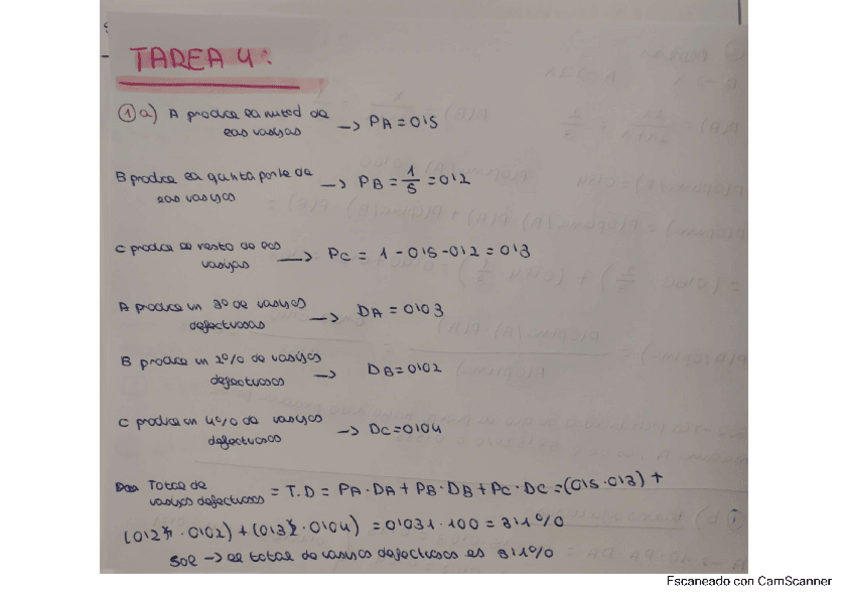 TAREA 4:
① a) A produce la mitad de
las vasijas → PA = 0'5
B produce la quinta parte de
las vasijas → PB = 1/5 = 0'2
C produce el resto de las
vasijas → PC = 1 - 0'5 - 0'2 = 0'3
A produce un 3% de vasijas
defectuosas → DA = 0'03
B produce un 2% de vasijas
defectuosas → DB = 0'02
C produce un 4% de vasijas
defectuosas → DC = 0'04
Total de
vasijas defectuosas = T.D = PA · DA + PB · DB + PC · DC = (0'5 · 0'3) +
(0'2 · 0'02) + (0'3 · 0'04) = 0'031 · 100 = 3'1%
Sol → el total de vasijas defectuosas es 3'1%
Escaneado con CamScanner